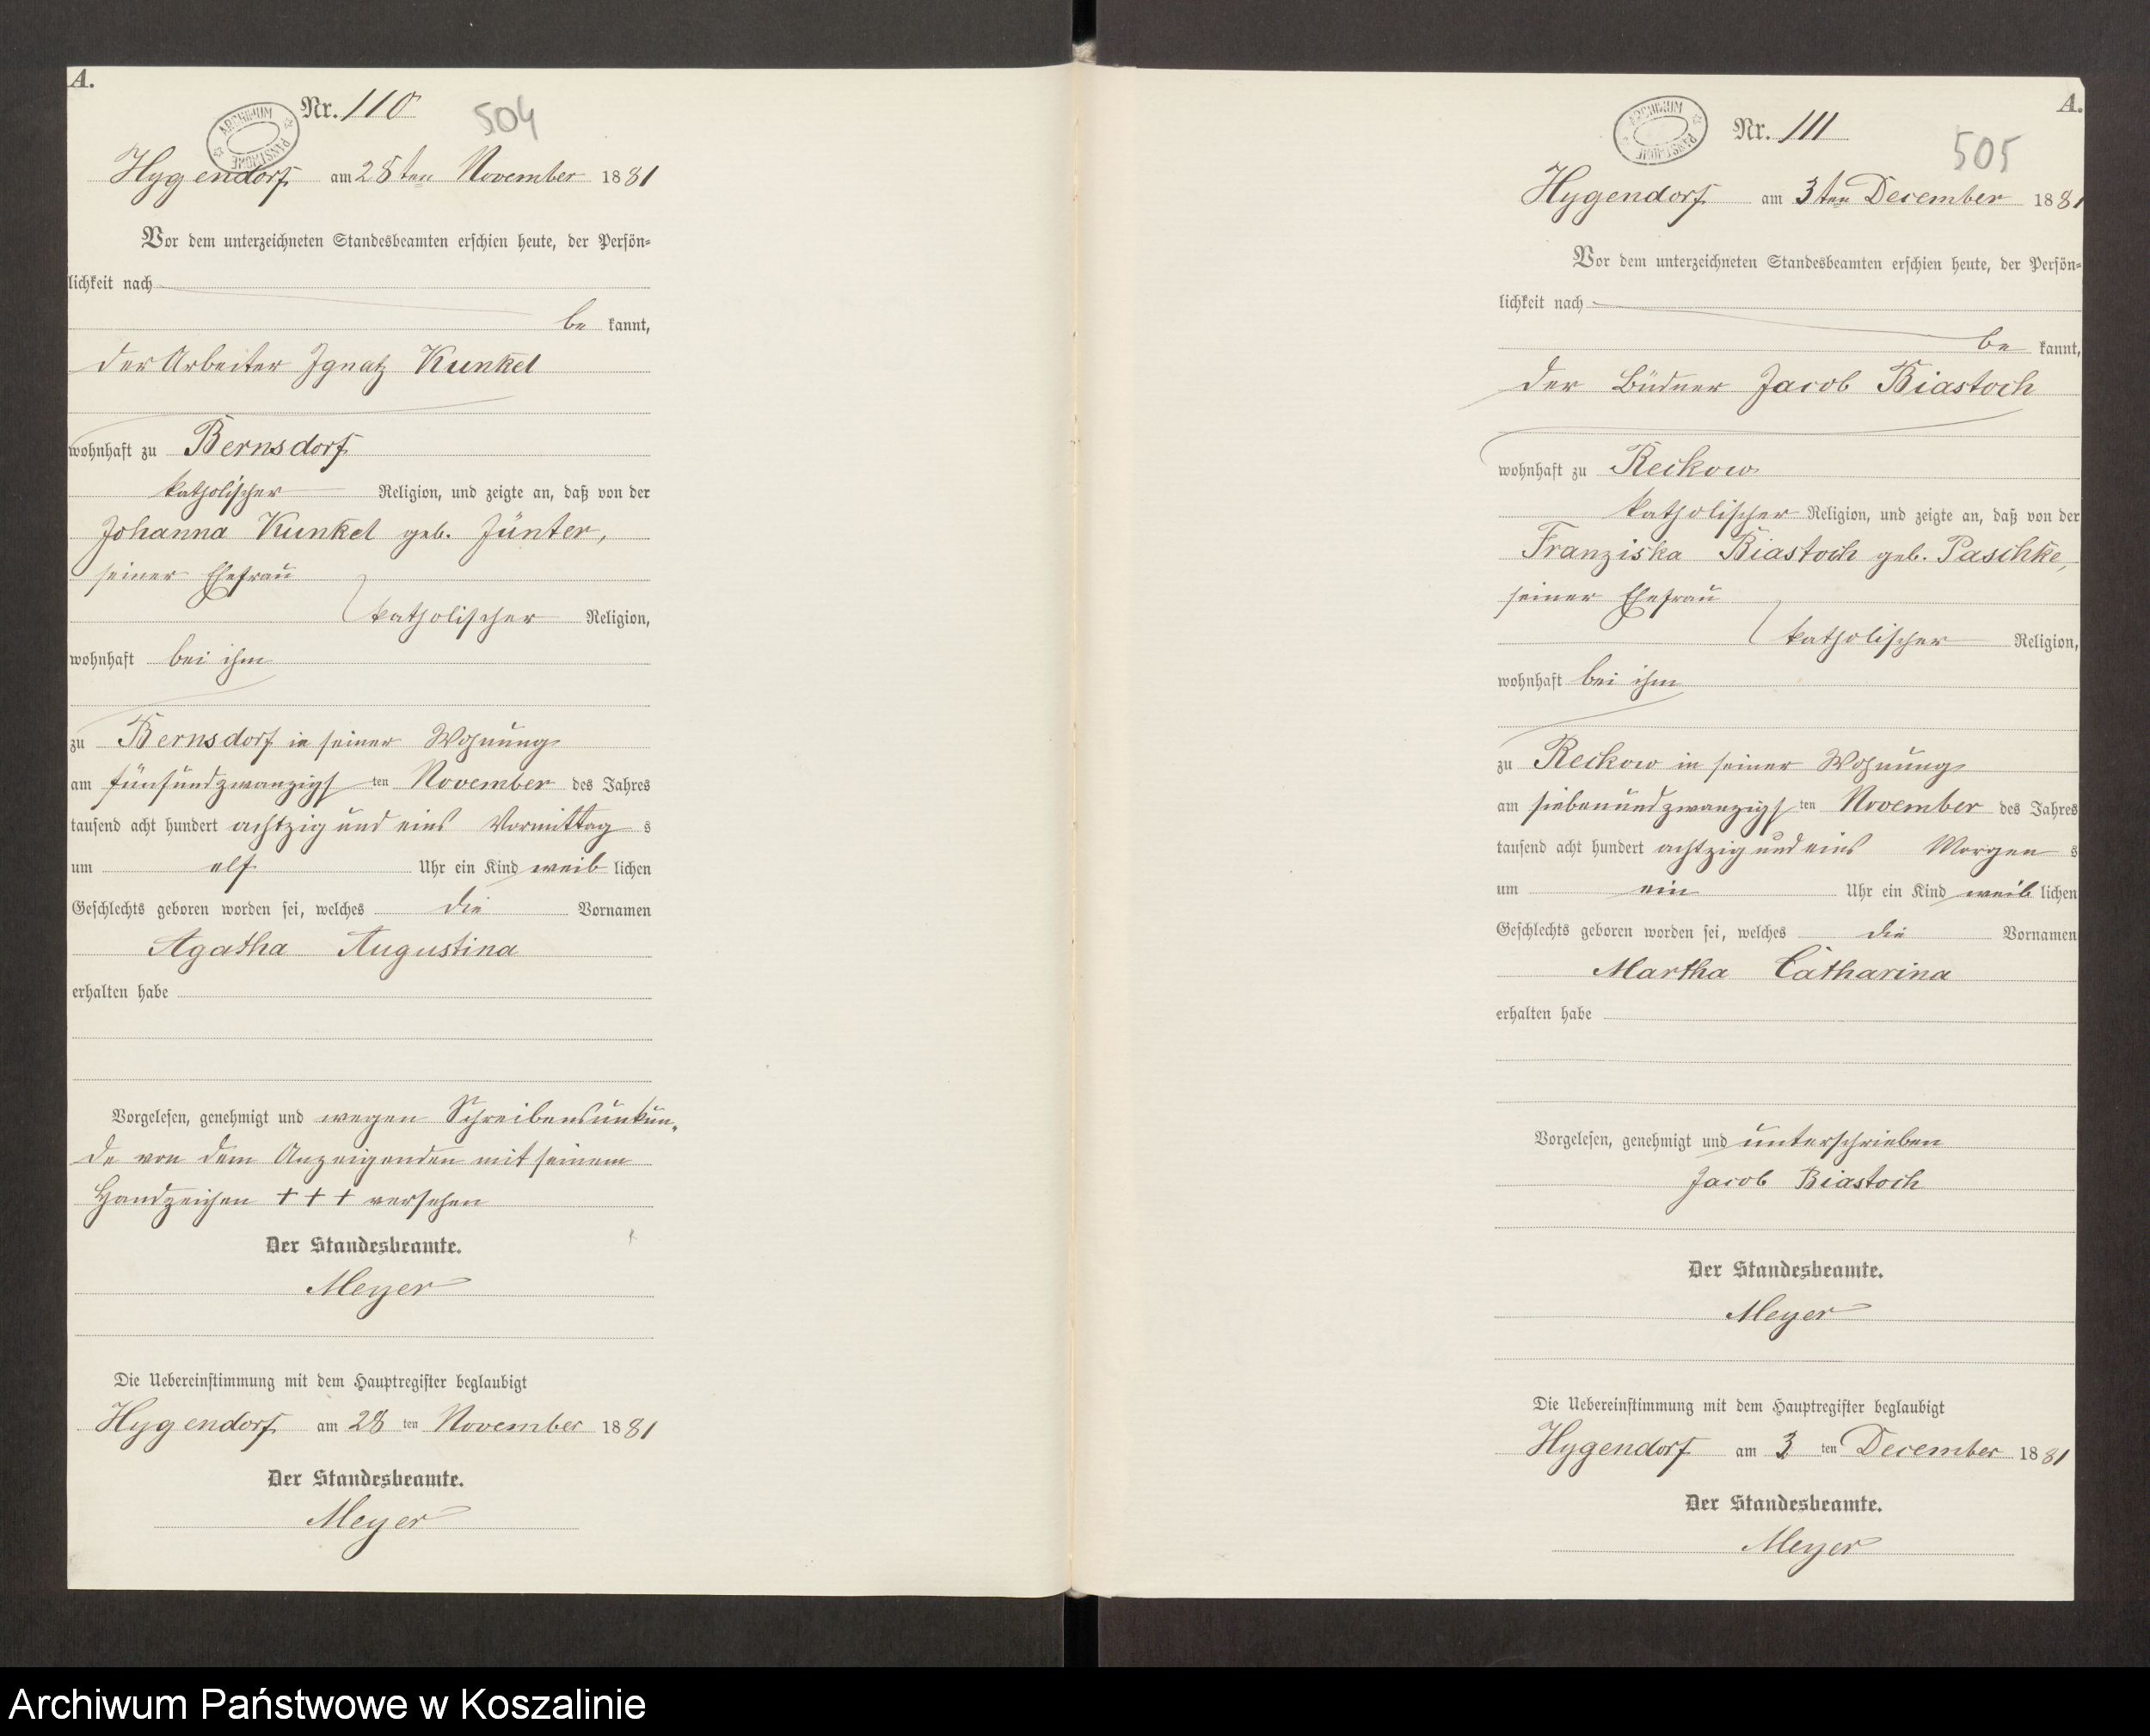 A.
Nr. 110
504
ARCHIWUM PAŃSTWOWE
Hygendorf am 28ten November 1881
Vor dem unterzeichneten Standesbeamten erschien heute, der Persön-
lichkeit nach
be kannt,
der Arbeiter Ignatz Kunkel
wohnhaft zu Bernsdorf
katholischer Religion, und zeigte an, daß von der
Johanna Kunkel geb. Jünter,
seiner Ehefrau
katholischer Religion,
wohnhaft bei ihm
zu Bernsdorf in seiner Wohnung
am fünfundzwanzigs ten November des Jahres
tausend acht hundert achtzig und eins Vormittag s
um elf Uhr ein Kind weib lichen
Geschlechts geboren worden sei, welches die Vornamen
Agatha Augustina
erhalten habe
Vorgelesen, genehmigt und wegen Schreibensunkun-
de von dem Anzeigenden mit seinem
Handzeichen + + + versehen
Der Standesbeamte.
Meyer
Die Uebereinstimmung mit dem Hauptregister beglaubigt
Hygendorf am 28 ten November 1881
Der Standesbeamte.
Meyer
A.
Nr. 111
505
ARCHIWUM PAŃSTWOWE
Hygendorf am 3ten December 1881
Vor dem unterzeichneten Standesbeamten erschien heute, der Persön-
lichkeit nach
be kannt,
der Büdner Jacob Biastoch
wohnhaft zu Reckow
katholischer Religion, und zeigte an, daß von der
Franziska Biastoch geb. Paschke,
seiner Ehefrau
katholischer Religion,
wohnhaft bei ihm
zu Reckow in seiner Wohnung
am siebenundzwanzigs ten November des Jahres
tausend acht hundert achtzig und eins Morgen s
um ein Uhr ein Kind weib lichen
Geschlechts geboren worden sei, welches die Vornamen
Martha Catharina
erhalten habe
Vorgelesen, genehmigt und unterschrieben
Jacob Biastoch
Der Standesbeamte.
Meyer
Die Uebereinstimmung mit dem Hauptregister beglaubigt
Hygendorf am 3 ten December 1881
Der Standesbeamte.
Meyer
Archiwum Państwowe w Koszalinie